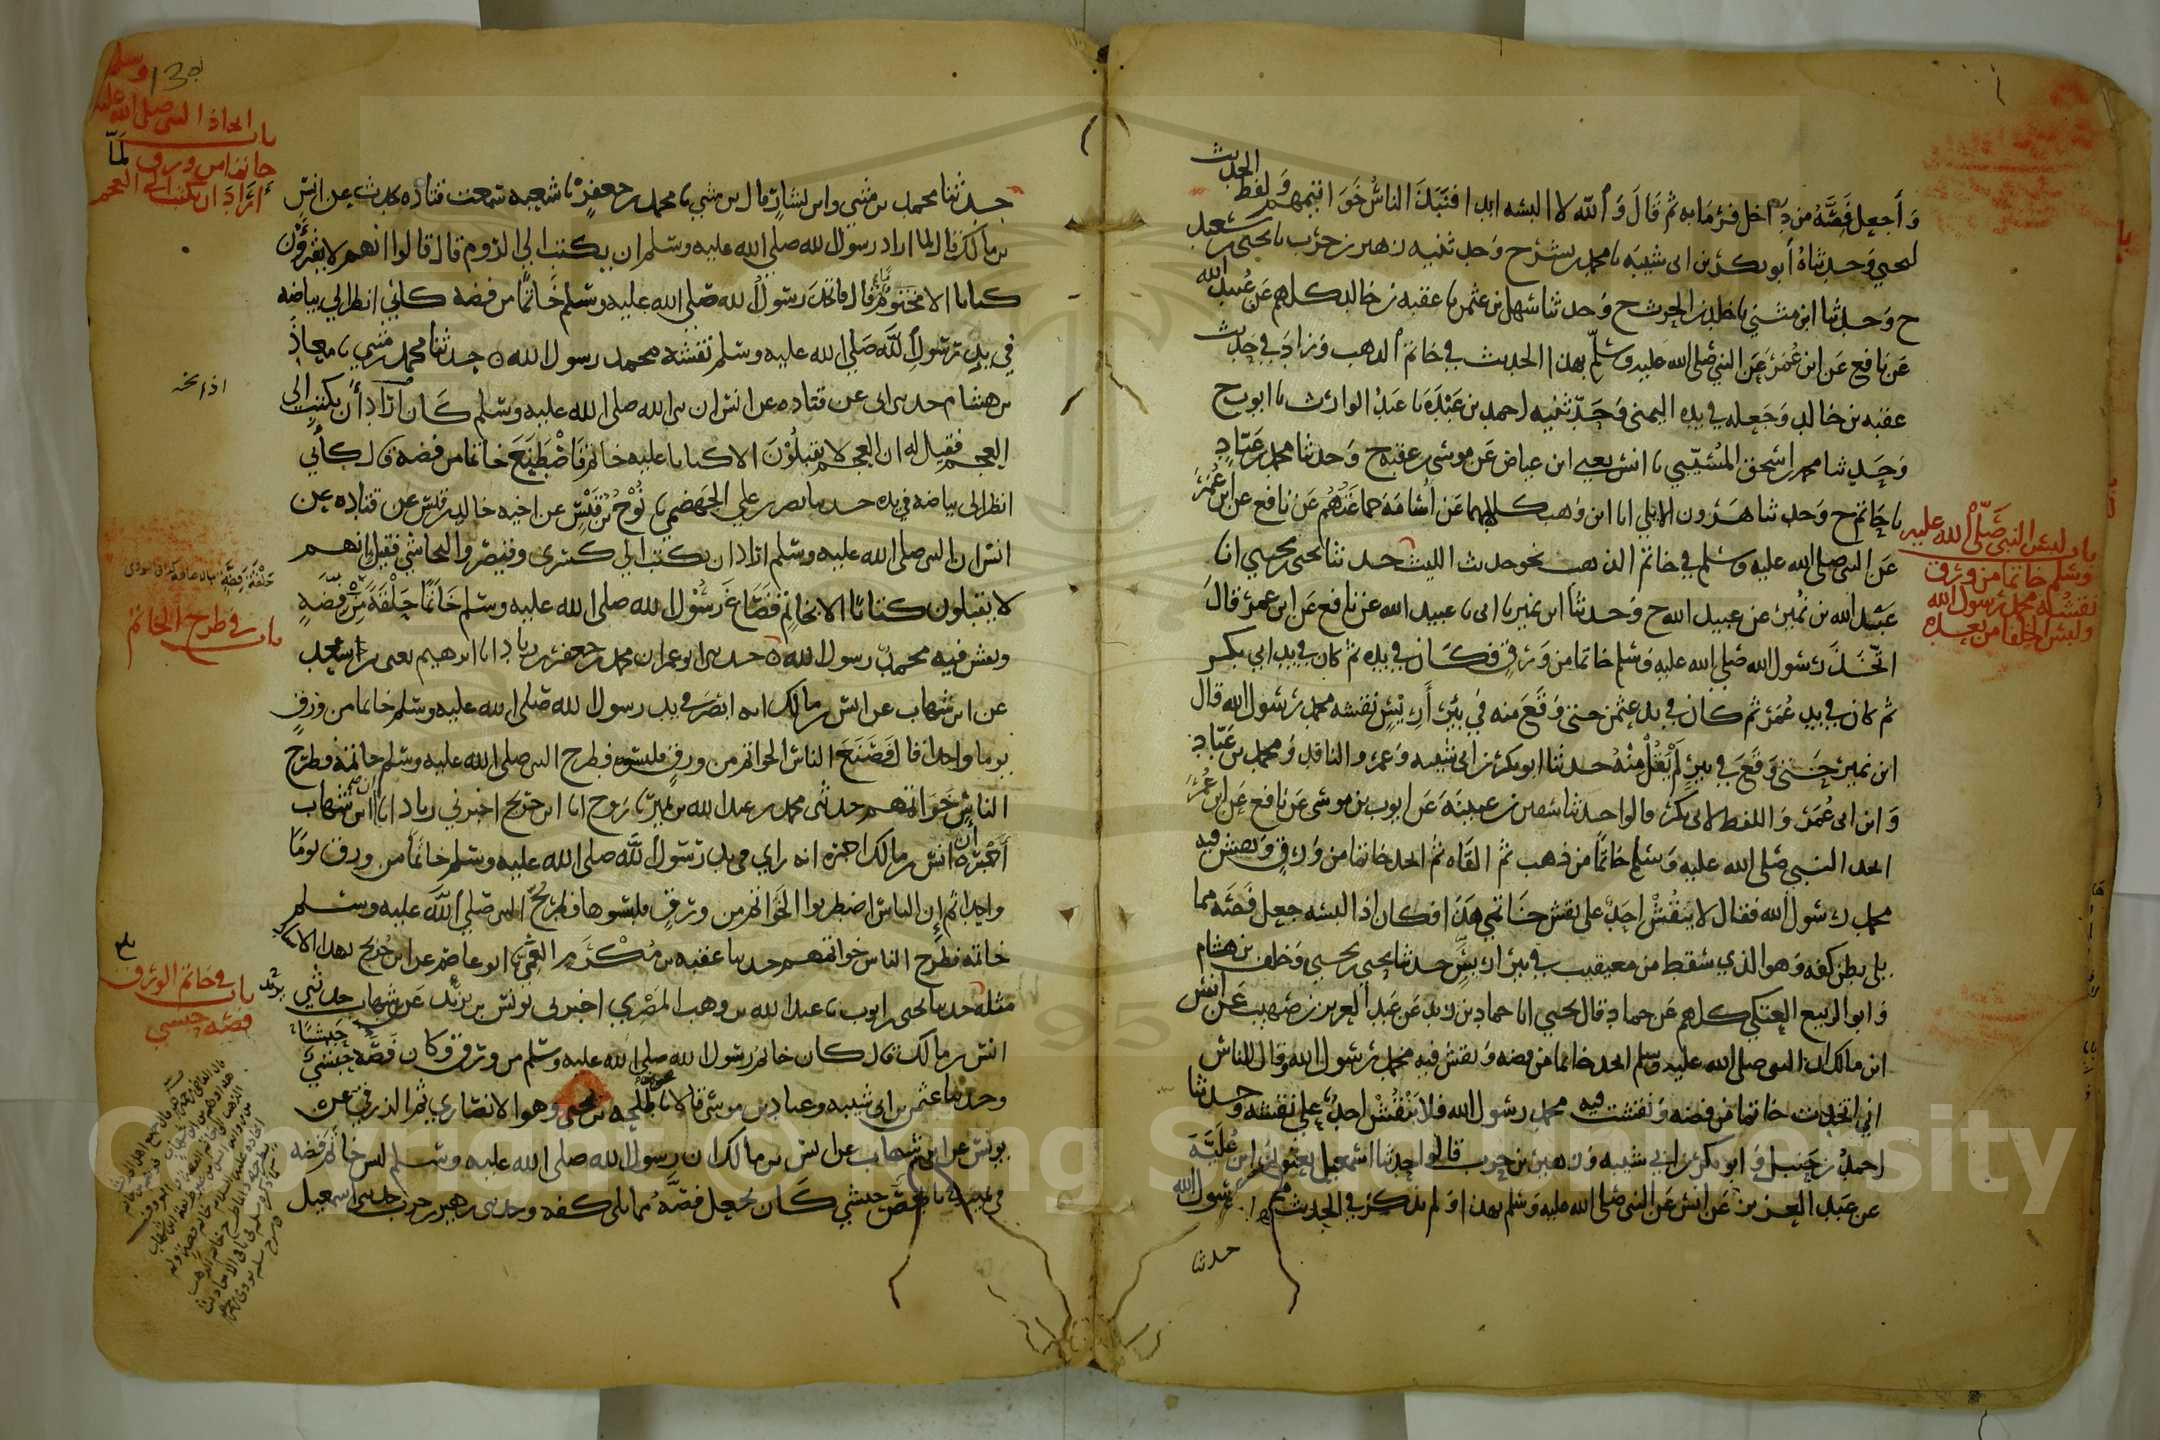 وأجعل فصه من داخل فرمى به ثم قال والله لا البسه ابدا فنبذ الناس خواتيمهم ولفظ الحديث
ليحيى وحدثناه أبو بكر بن ابى شيبه نا محمد بن بشر ح وحدثنيه زهير بن حرب نا يحيى بن سعيد
ح وحدثنا ابن مثنى نا خالد بن الحرث ح وحدثنا سهل بن عثمن نا عقبه بن خالد كلهم عن عبيد الله
عن نافع عن ابن عمر عن النبي صلى الله عليه وسلم بهذا الحديث في خاتم الذهب وزاد في حديث
عقبه بن خالد وجعله في يده اليمنى وحدثنيه احمد بن عبدة نا عبد الوارث نا ايوب ح
وحدثنا محمد بن اسحق المسيبي نا انس يعني ابن عياض عن موسى بن عقبه ح وحدثنا محمد بن عباد
نا حاتم ح وحدثنا هرون الايلي انا ابن وهب كلاهما عن أسامة جماعتهم عن نافع عن ابن عمر
عن النبي صلى الله عليه وسلم في خاتم الذهب نحو حديث الليث حدثنا يحيى بن يحيى انا
عبد الله بن نمير عن عبيد الله ح وحدثنا ابن نمير نا ابى نا عبيد الله عن نافع عن ابن عمر قال
اتخذ رسول الله صلى الله عليه وسلم خاتما من ورق فكان في يده ثم كان في يد ابي بكر
ثم كان في يد عمر ثم كان في يد عثمن حتى وقع منه في بئر أريس نقشه محمد رسول الله قال
ابن نمير حتى وقع في بئر لم يقل منه حدثنا ابو بكر بن ابي شيبه وعمرو الناقد ومحمد بن عباد
وابن ابى عمر واللفظ لابى بكر قالوا حدثنا سفين بن عيينة عن ايوب بن موسى عن نافع عن ابن عمر
اتخذ النبي صلى الله عليه وسلم خاتما من ذهب ثم القاه ثم اتخذ خاتما من ورق ونقش فيه
محمد رسول الله فقال لا ينقش احد على نقش خاتمي هذا فكان اذا لبسه جعل فصه مما
يلي بطن كفه وهو الذي سقط من معيقيب في بئر اريس حدثنا يحيى بن يحيى وخلف بن هشام
وابو الربيع العتكي كلهم عن حماد قال يحيى انا حماد بن زيد عن عبد العزيز بن صهيب عن انس
ابن مالك ان النبي صلى الله عليه وسلم اتخذ خاتما من فضه ونقش فيه محمد رسول الله وقال للناس
اني اتخذت خاتما من فضه ونقشت فيه محمد رسول الله فلا ينقش احد على نقشه وحدثنا
احمد بن حنبل وابو بكر بن ابي شيبه وزهير بن حرب قالوا حدثنا اسمعيل يعنون ابن علية
عن عبد العزيز عن انس عن النبي صلى الله عليه وسلم بهذا ولم يذكر في الحديث محمد رسول الله
حدثنا
باب لبس النبي صلى الله عليه
وسلم خاتما من ورق
نقشه محمد رسول الله
ولبس الخلفا من بعده
حدثنا محمد بن مثنى وابن بشار قال بن مثنى نا محمد بن جعفر نا شعبه سمعت قتاده يحدث عن انس
بن مالك قال لما اراد رسول الله صلى الله عليه وسلم ان يكتب الى الروم قال قالوا انهم لا يقرؤن
كتابا الا مختوما قال فاتخذ رسول الله صلى الله عليه وسلم خاتما من فضه كاني انظر الى بياضه
في يد رسول الله صلى الله عليه وسلم نقشه محمد رسول الله حدثنا محمد بن مثنى نا معاذ
بن هشام حدثني ابى عن قتاده عن انس ان نبى الله صلى الله عليه وسلم كان أراد أن يكتب الى
العجم فقيل له ان العجم لا يقبلون الا كتابا عليه خاتم فاصطنع خاتما من فضه قال كأني
انظر الى بياضه في يده حدثنا نصر بن علي الجهضمي نا نوح بن قيس عن اخيه خالد بن قيس عن قتاده عن
انس ان النبي صلى الله عليه وسلم اراد ان يكتب الى كسرى وقيصر والنجاشي فقيل انهم
لا يقبلون كتابا الا بخاتم فصاغ رسول الله صلى الله عليه وسلم خاتما حلقة من فضة
ونقش فيه محمد رسول الله حدثني ابو عمران محمد بن جعفر بن زياد انا ابرهيم يعنى بن سعد
عن ابن شهاب عن انس بن مالك انه ابصر في يد رسول الله صلى الله عليه وسلم خاتما من ورق
يوما واحدا قال فصنع الناس الخواتم من ورق فلبسوه فطرح النبي صلى الله عليه وسلم خاتمه فطرح
الناس خواتمهم حدثنى محمد بن عبد الله بن نمير نا روح انا ابن جريج اخبرني زياد ان ابن شهاب
أخبره أن انس بن مالك اخبره انه راى في يد رسول الله صلى الله عليه وسلم خاتما من ورق يوما
واحدا ثم إن الناس اضطربوا الخواتم من ورق فلبسوها فطرح النبي صلى الله عليه وسلم
خاتمه فطرح الناس خواتمهم حدثنا عقبه بن مكرم العمي نا ابو عاصم عن ابن جريج بهذا الاسناد
مثله حدثنا يحيى بن ايوب نا عبد الله بن وهب المصري اخبرنى يونس بن يزيد عن ابن شهاب حدثني
انس بن مالك قال كان خاتم رسول الله صلى الله عليه وسلم من ورق وكان فصه حبشيا
وحدثنا عثمن بن ابى شيبه وعباد بن موسى قالا نا طلحه بن يحيى وهو الانصاري ثم الزرقي عن
يونس عن ابن شهاب عن انس بن مالك ان رسول الله صلى الله عليه وسلم لبس خاتم فضه
في يمينه فيه فص حبشي كان يجعل فصه مما يلي كفه وحدثنى زهير بن حرب حدثنى اسمعيل
130
باب اتخاذ النبي صلى الله عليه وسلم
خاتما من ورق لما
أراد ان يكتب الى العجم
باب في طرح الخاتم
باب في خاتم الورق
فصه حبشي
Copyright © King Saud University